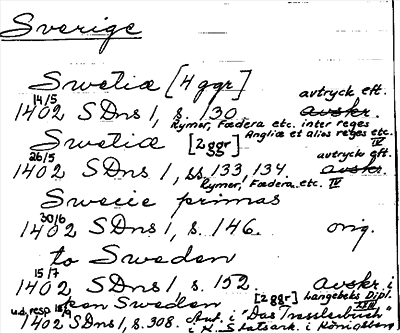 Sverige
Swetiæ [4 ggr]
14/5 avtryck eft.
1402 SDns 1, s. 130. avskr.
Rymer, Fædera etc. inter reges
Angliæ et alios reges etc. IV
Swetiæ [2 ggr]
26/5 avtryck eft.
1402 SDns 1, ss. 133, 134. avskr.
Rymer, Fædera etc. IV
Swecie primas
30/6
1402 SDns 1, s. 146. orig.
to Sweden
15/7
1402 SDns 1, s. 152. avskr. i
Langebeks Dipl. XXIII
Sweden [2 ggr]
u.d. resp.
1402 SDns 1, s. 308. i "Das Tresslerbuch"
i K. Statsark. i Königsberg